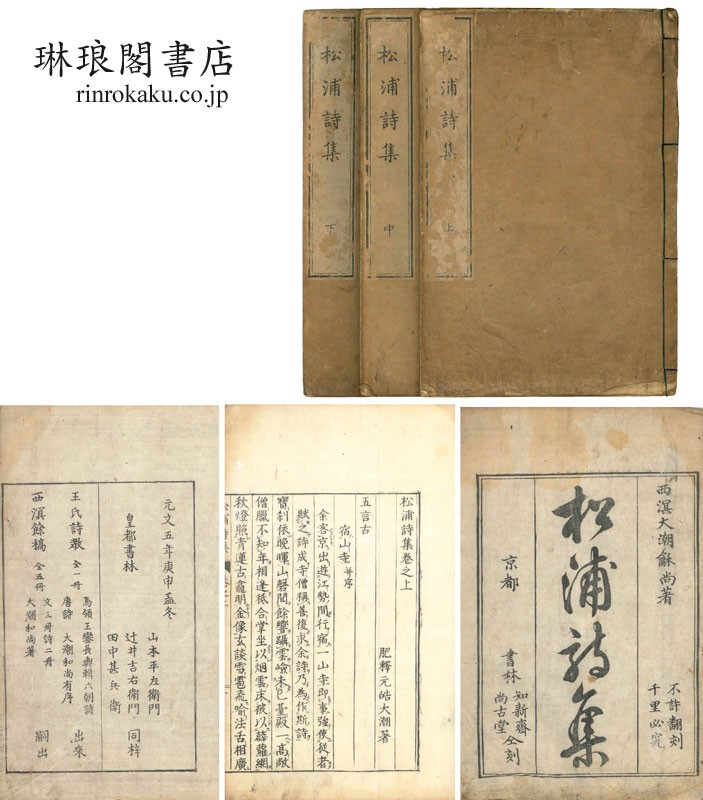 琳琅閣書店
rinrokaku.co.jp
松浦詩集 上
松浦詩集 中
松浦詩集 下
西溟大潮龢尚著
松浦詩集
不許翻刻
千里必究
京都
書林
知新齋
尚古堂
仝刻
松浦詩集卷之上
肥釋元皓大潮著
五言古
宿山寺 并序
余客京出遊江勢間行宿一山寺即事強使從者
賦之詩成寺僧稱善復求余詩乃為作斯詩
寶刹依晚暉山磬聞餘響躡雲嶮未已臺殿一高敞
僧臘不知年相逢秪合掌坐以烟雲床被以薜蘿網
秋燈照青蓮古龕明金像玄談雪雹飛喻法舌相廣
元文五年庚申孟冬
皇都書林
山本平左衛門
辻井吉右衛門 同梓
田中甚兵衛
王氏詩教 全一冊
輯六朝詩
唐詩 大潮和尚有序 出來
西溟餘稿 全五冊
文三冊詩二冊
大潮和尚著 嗣出